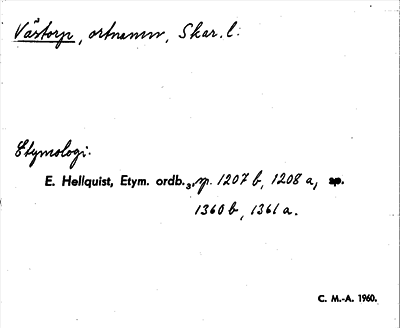 Västorp, ortnamn, Skar. l.
Etymologi.
E. Hellquist, Etym. ordb.₃, sp. 1207 b, 1208 a, sp.
1360 b, 1361 a.
C. M.-A. 1960.